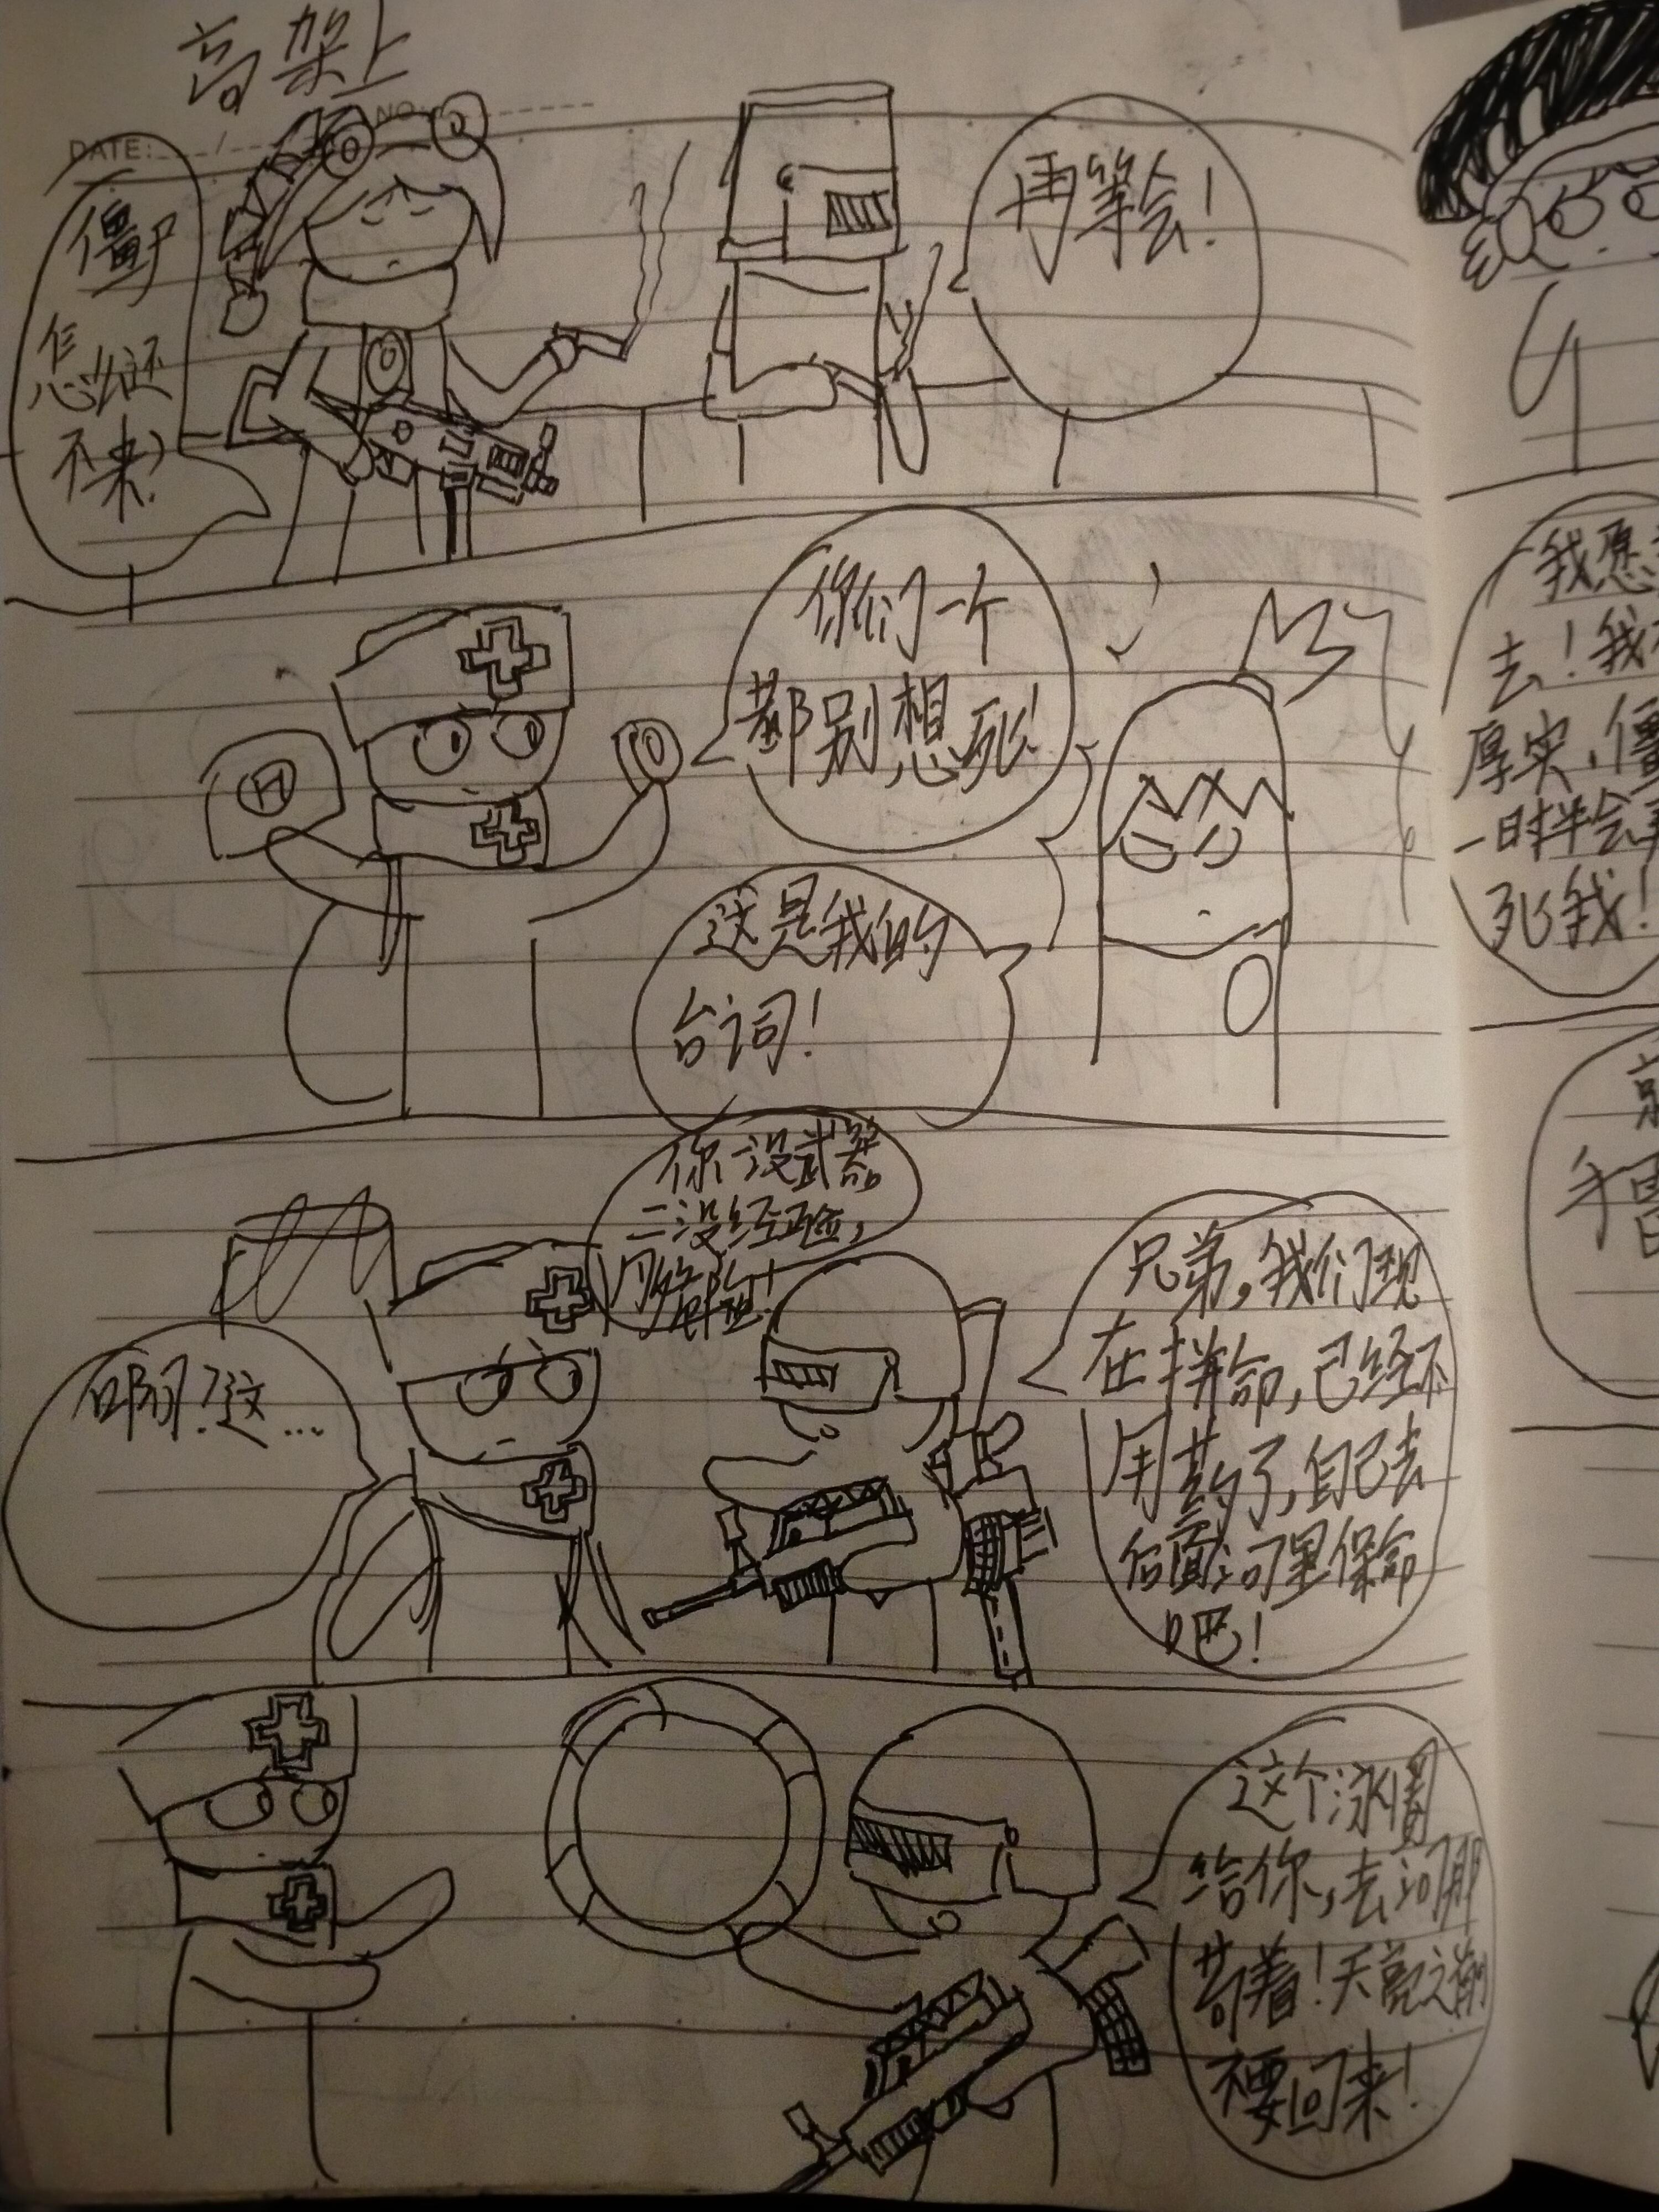 高架上
DATE: / NO:
僵尸
怎么还
不来?
再等会!
你们一个
都别想死!
这是我的
台词!
你一没武器
二没经验,
兄弟,我们现
在拼命,已经不
用药了,自己去
后面河里保命
吧!
啊?这…
这个泳圈
给你,去河那
苟着!天亮之前
不要回来!
我愿
去!我
厚实,僵
一时半会
死我!